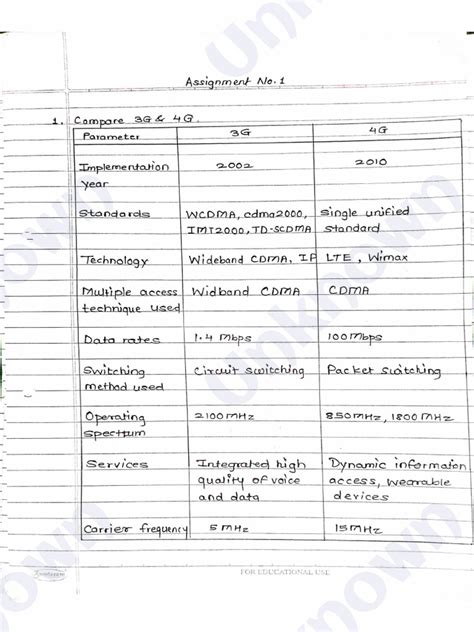 Assignment No. 1
1. Compare 3G & 4G.
Parameter 3G 4G
Implementation 2002 2010
year
Standards WCDMA, cdma2000, Single unified
IMT2000, TD-SCDMA standard
Technology Wideband CDMA, IP LTE, Wimax
Multiple access Widband CDMA CDMA
technique used
Data rates 1.4 Mbps 100Mbps
Switching Circuit switching Packet switching
method used
Operating 2100MHz 850MHz, 1800MHz
Specttum
Services Integrated high Dynamic informaton
quality of voice access, wearable
and data devices
Carrier frequency 5MHz 15MHz
FOR EDUCATIONAL USE
Unknown
Unknown
Unknown
Unknown